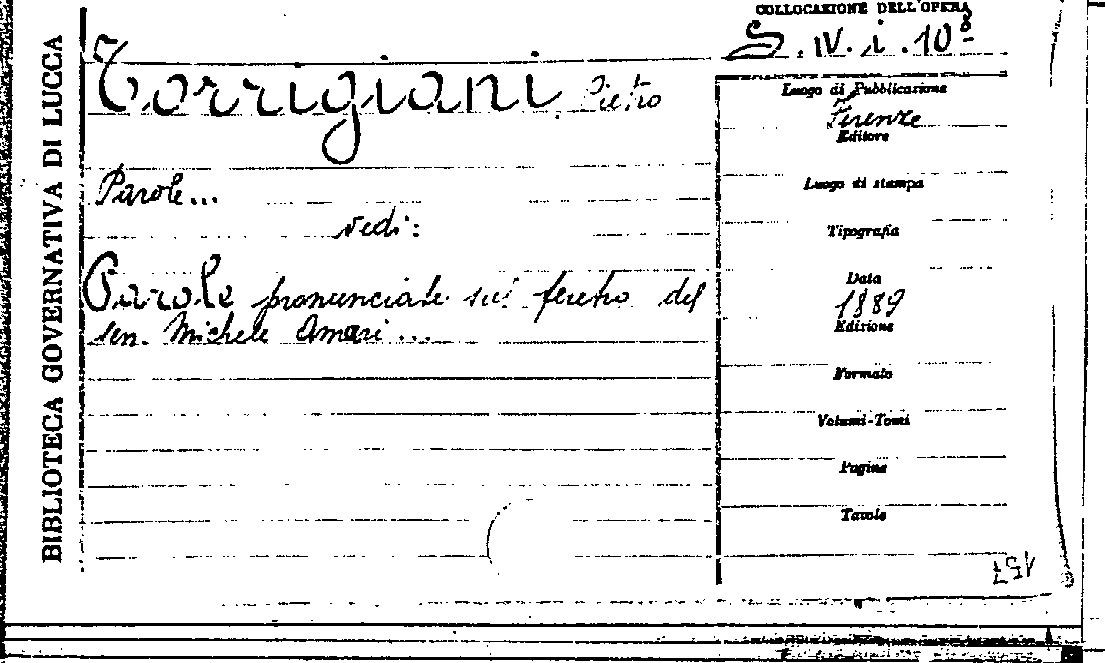 BIBLIOTECA GOVERNATIVA DI LUCCA
COLLOCAZIONE DELL'OPERA
S. IV. i. 10º
Torrigiani, Pietro
Parole...
vedi:
Parole pronunciate sul feretro del
sen. Michele Amari...
Luogo di Pubblicazione
Firenze
Editore
Luogo di stampa
Tipografia
Data
1889
Edizione
Formato
Volumi-Tomi
Pagine
Tavole
157